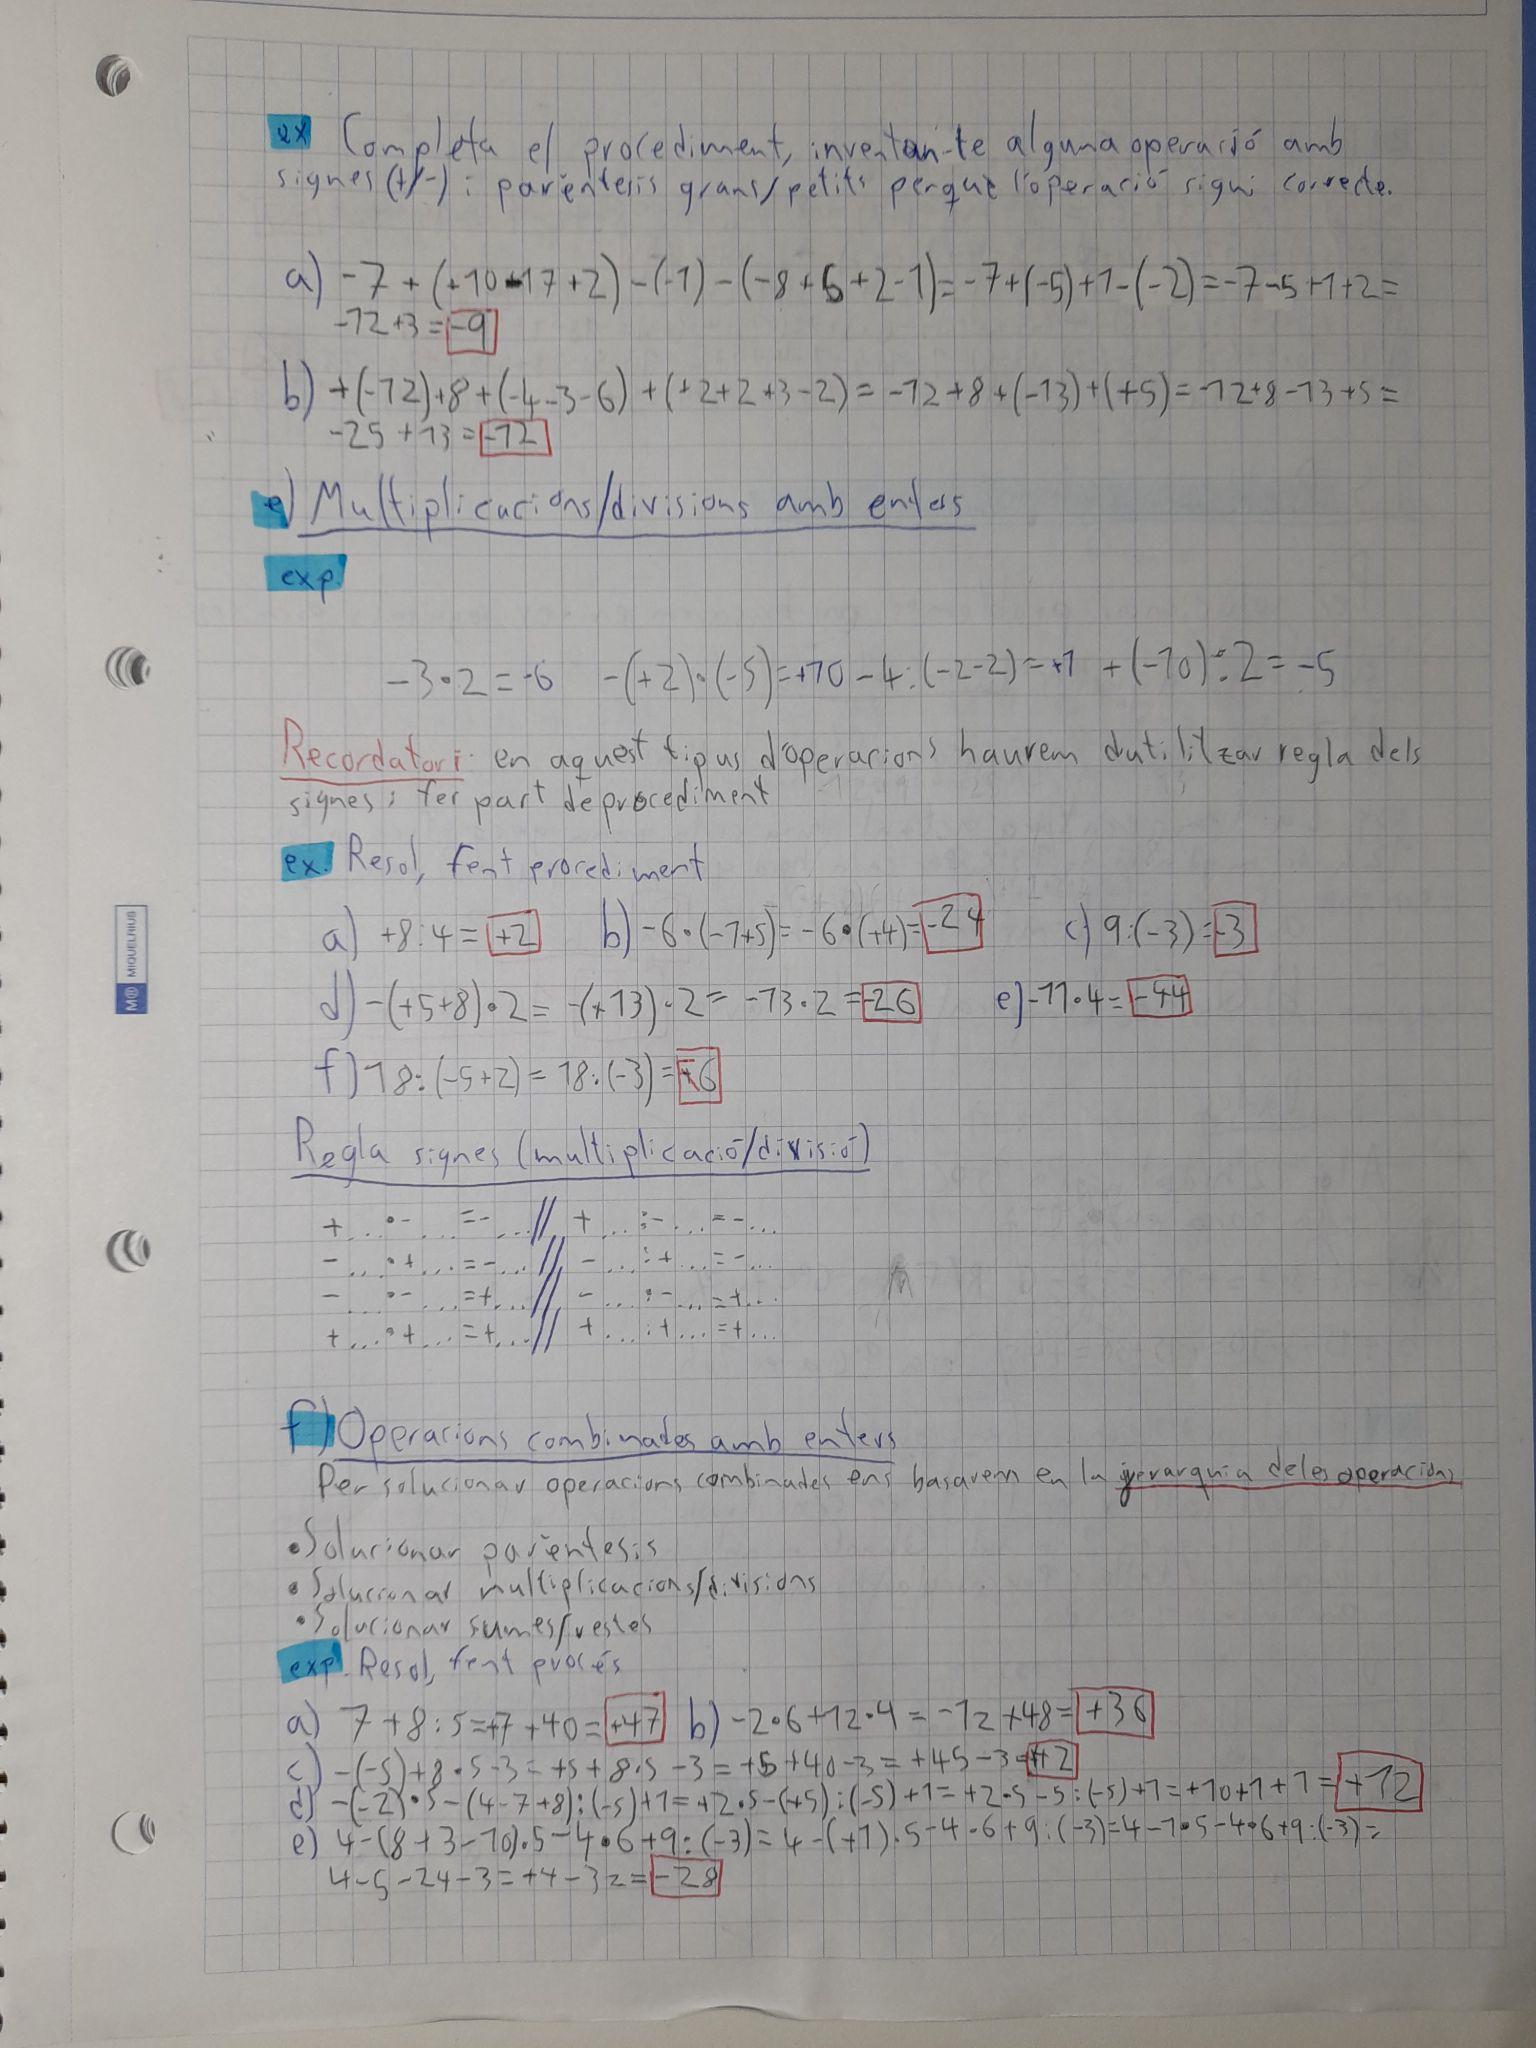 ex Completa el procediment, inventan-te alguna operació amb
signes (+/-) i parèntesis grans/petits perquè l'operació sigui correcte.
a) -7 + (+10-17+2) -(-1) -(-8+5+2-1)= -7+(-5)+1-(-2)=-7-5+1+2=
-12+3=-9
b) +(-12)+8+(-4-3-6) +(+2+2+3-2)= -12+8+(-13)+(+5)=-12+8-13+5=
-25+13=-12
e) Multiplicacions/divisions amb enters
exp.
-3·2=-6 -(+2)·(-5)=+10 -4:(-2-2)=+1 +(-10):2=-5
Recordatori: en aquest tipus d'operacions haurem dutilitzar regla dels
signes i fer part de procediment
ex. Resol, fent procediment
a) +8:4=+2 b) -6·(-1+5)=-6·(+4)=-24 c) 9:(-3)=-3
d) -(+5+8)·2= -(+13)·2= -13·2=-26 e) -11·4=-44
f) 18:(-5+2)= 18:(-3)=-6
Regla signes (multiplicació/divisió)
+...·-...=-...// +...:-...=-...
-...·+...=-...// -...:+...=-...
-...·-...=+...// -...:-...=+...
+...·+...=+...// +...:+...=+...
f) Operacions combinades amb enters
Per solucionar operacions combinades ens basarem en la jerarquia deles operacions
•Solucionar parèntesis
•Solucionar multiplicacions/divisions
•Solucionar sumes/restes
exp. Resol, fent procés
a) 7+8:5=+7+40=+47 b) -2·6+12·4=-12+48=+36
c) -(-5)+8·5-3=+5+8·5-3=+5+40-3=+45-3=+2
d) -(-2)·5-(4-7+8):(-5)+1=+2·5-(+5):(-5)+1=+2·5-5:(-5)+1=+10+1+1=+12
e) 4-(8+3-10)·5-4·6+9:(-3)=4-(+1)·5-4·6+9:(-3)=4-1·5-4·6+9:(-3)=
4-5-24-3=+4-32=-28
M® MIQUELRIUS